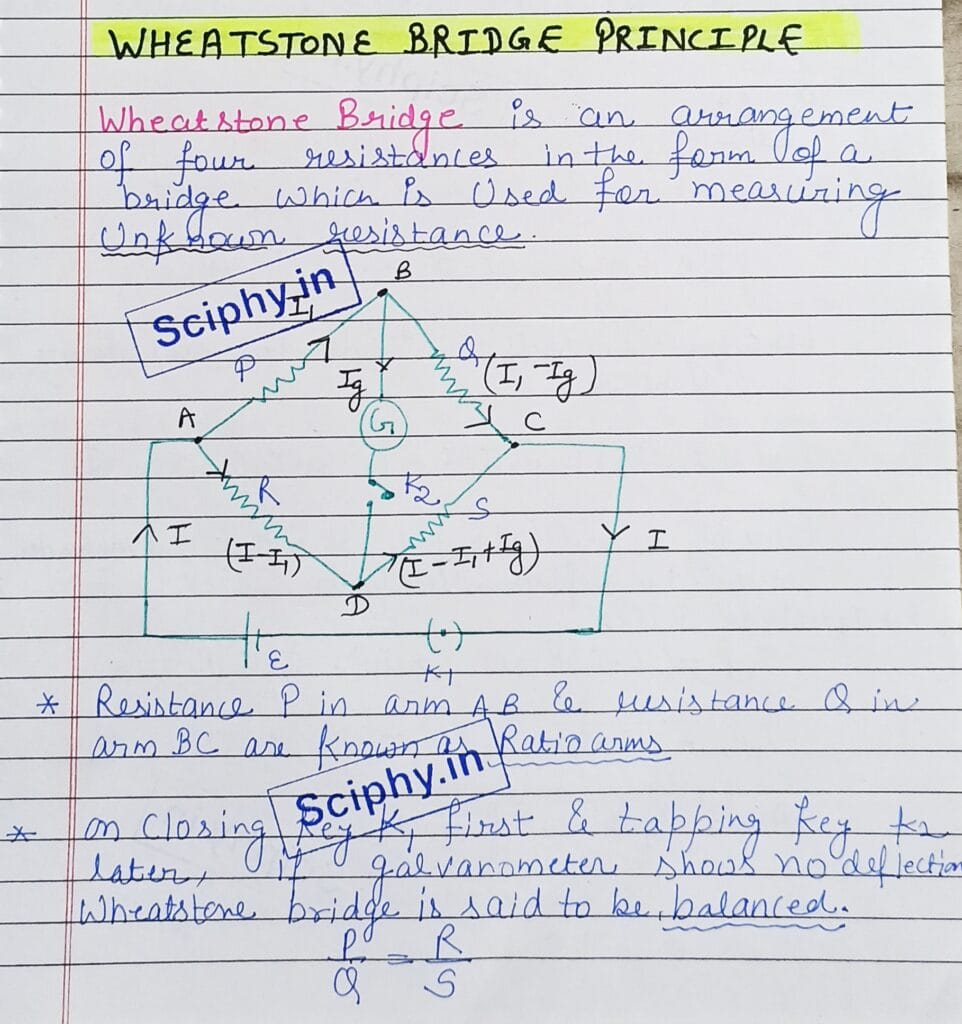 WHEATSTONE BRIDGE PRINCIPLE
Wheatstone Bridge is an arrangement
of four resistances in the form of a
bridge which is Used for measuring
Unknown resistance.
Sciphy.in
B
I₁
P
Q
Ig
(I₁-Ig)
A
G
C
R
K2
S
I
(I-I₁)
(I-I₁+Ig)
I
D
ε
K1
* Resistance P in arm AB & resistance Q in
arm BC are known as Ratio arms
Sciphy.in
* on Closing Key K₁ first & tapping key k2
later, if galvanometer shows no deflection
Wheatstone bridge is said to be balanced.
P/Q = R/S